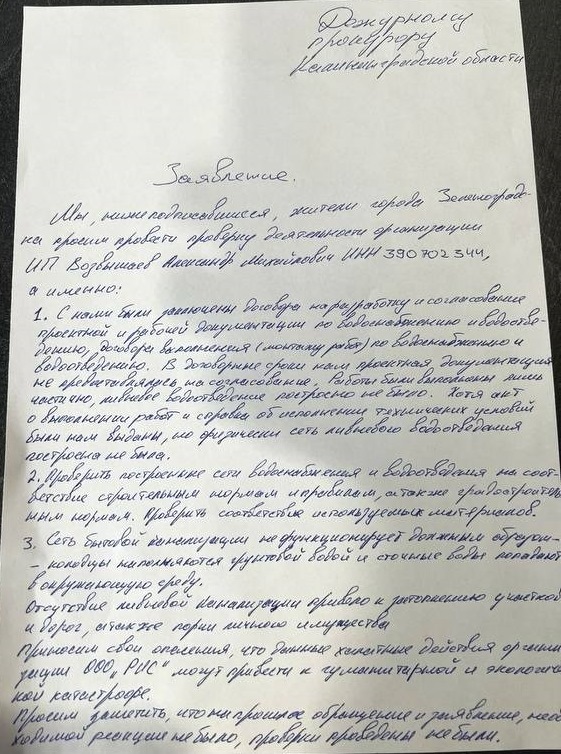 Дежурному
прокурору
Калининградской области
Заявление.
Мы, нижеподписавшиеся, жители города Зеленоградс-
ка просим провести проверку деятельности организации
ИП Возвышаев Александр Михайлович ИНН 390702344,
а именно:
1. С нами были заключены договора на разработку и согласование
проектной и рабочей документации по водоснабжению и водоотве-
дению, договора выполнения (монтажу работ) по водоснабжению и
водоотведению. В договорные сроки нам проектная документация
не предоставлялась на согласование. Работы были выполнены лишь
частично, ливневое водоотведение построено не было. Хотя акт
о выполнении работ и справка об исполнении технических условий
были нам выданы, но физически сеть ливневого водоотведения
построена не была.
2. Проверить построенные сети водоснабжения и водоотведения на соот-
ветствие строительным нормам и правилам, а также градостроитель
ным нормам. Проверить соответствие используемых материалов.
3. Сеть бытовой канализации не функционирует должным образом
- колодцы наполняются грунтовой водой и сточные воды попадают
в окружающую среду.
Отсутствие ливневой канализации привело к затоплению участков
и дорог, а также порчи личного имущества
Приносим свои опасения, что данные халатные действия органи
зации ООО "РИС" могут привести к гуманитарной и экологичес
кой катастрофе.
Просим заметить, что на прошлое обращение и заявление, необ
ходимой реакции не было, проверки проведены не были.